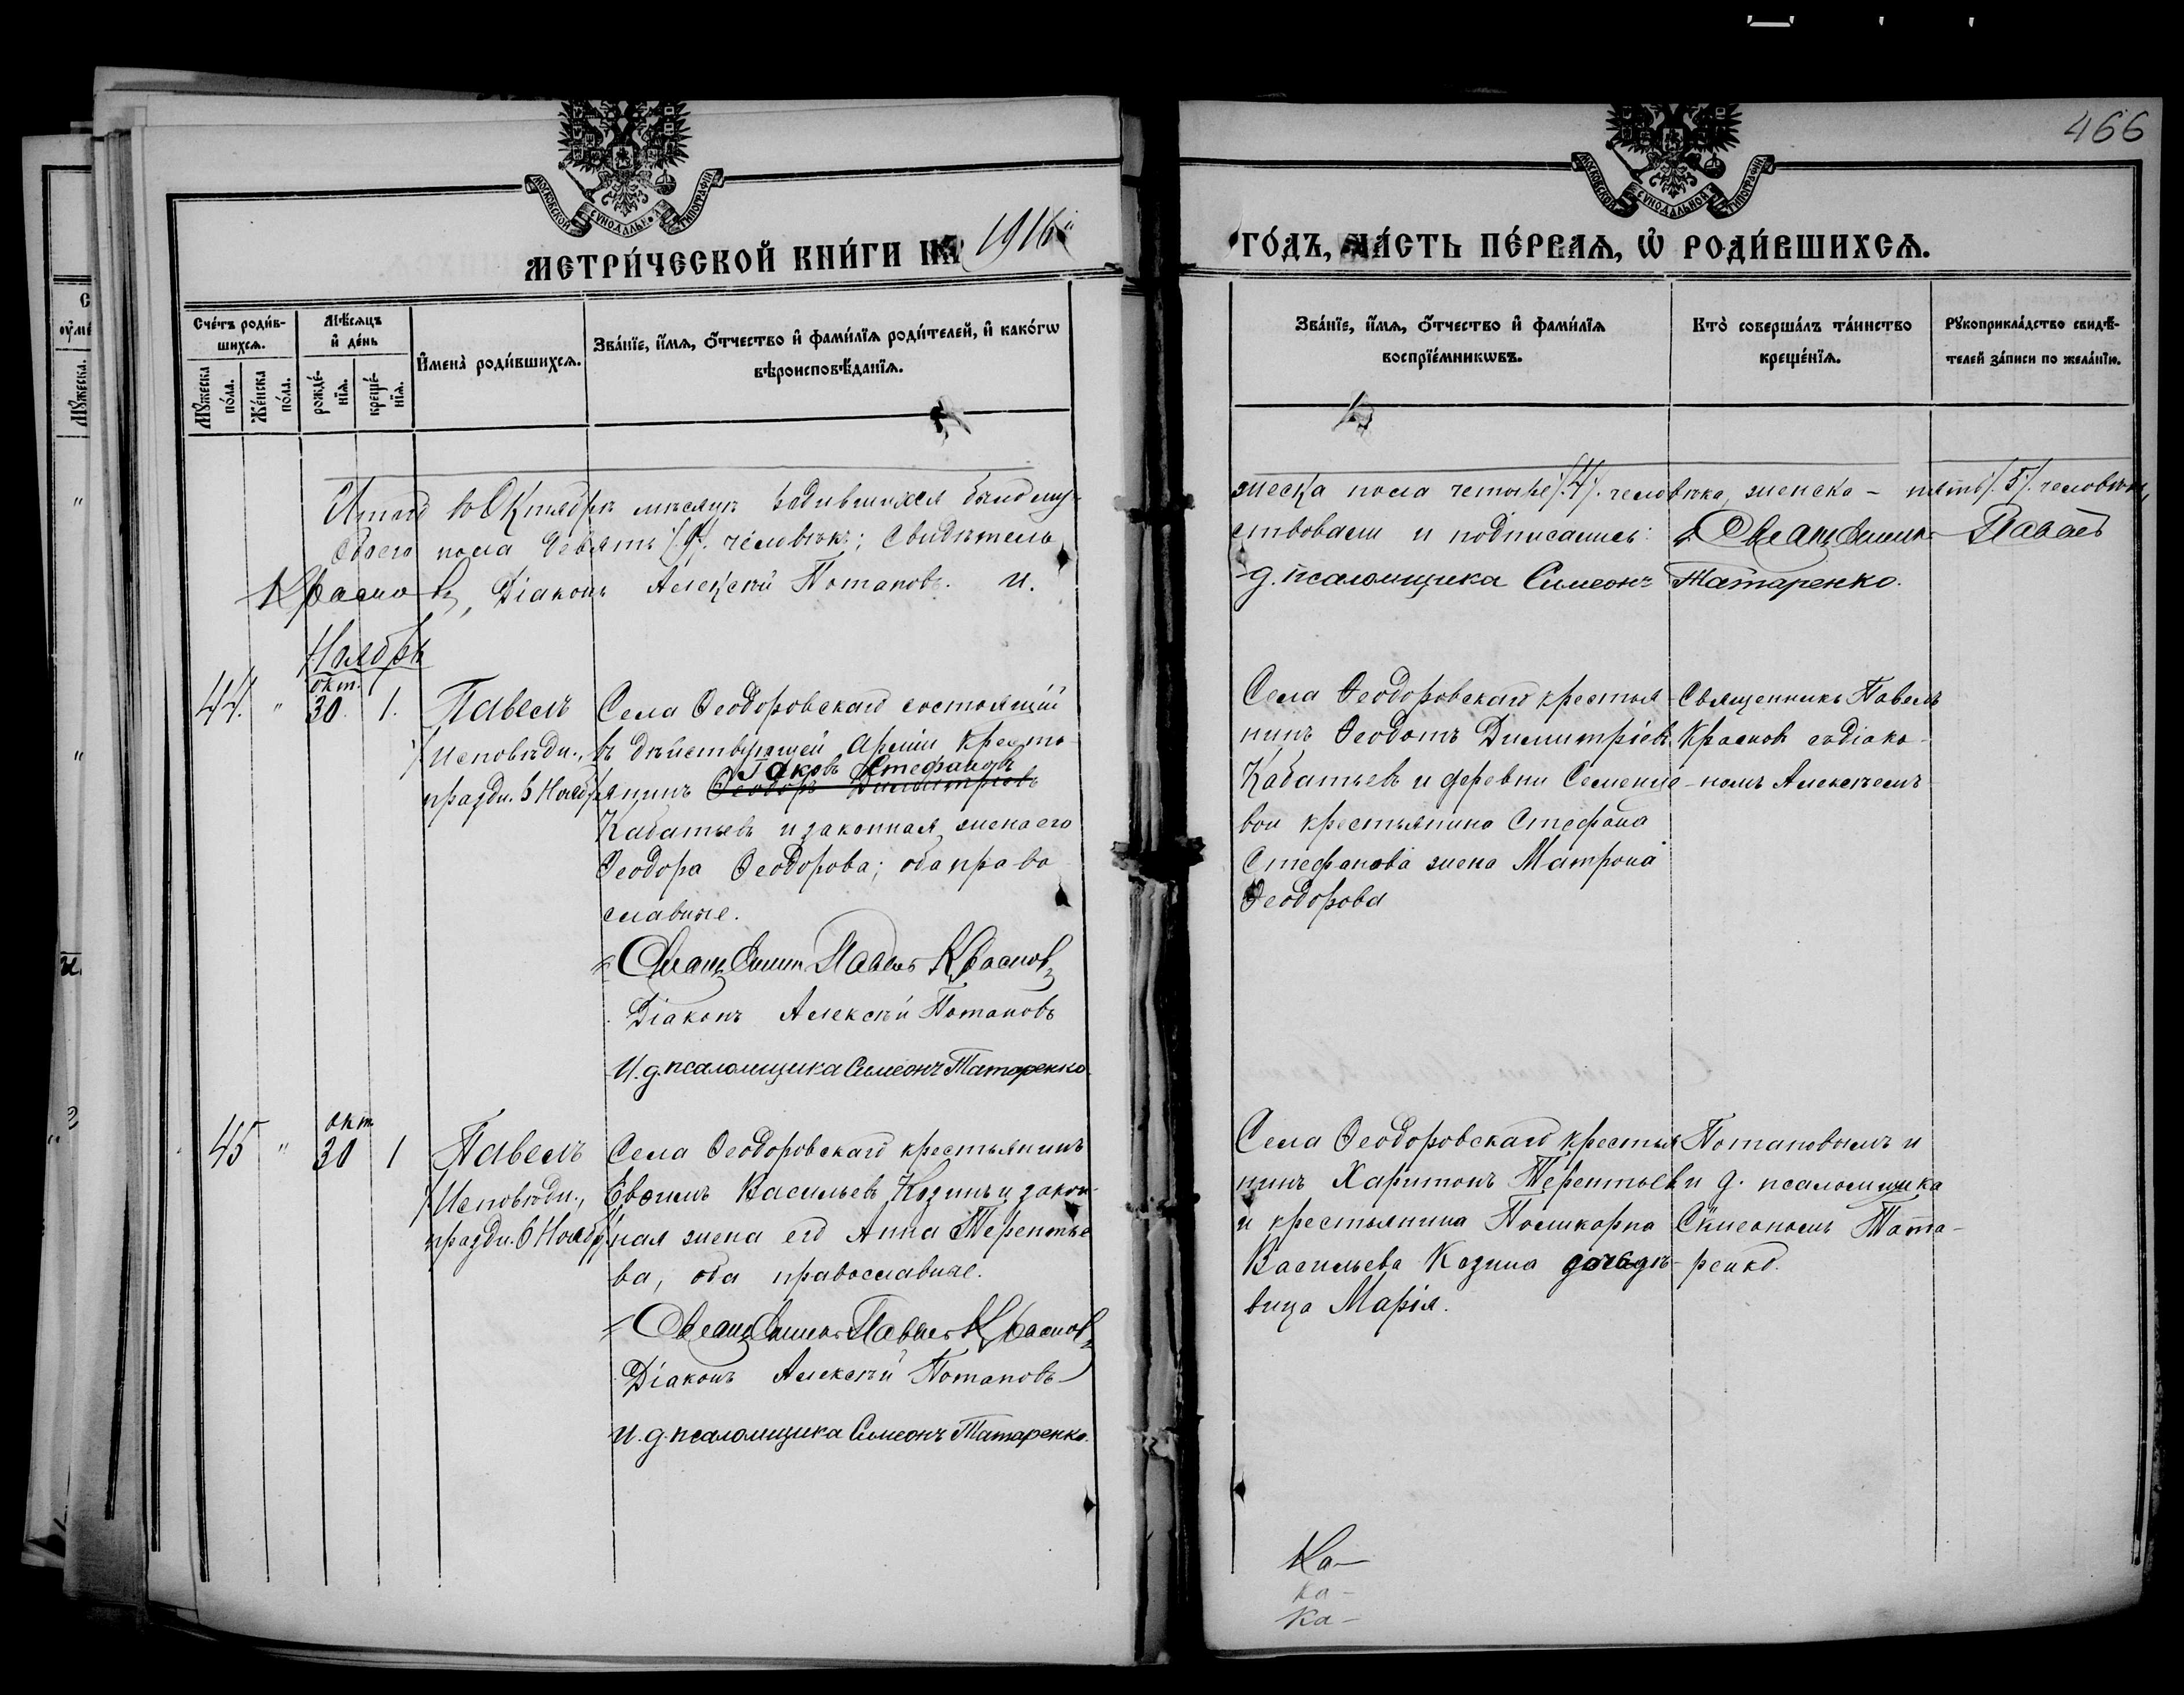 466
МОСКОВСКОЙ СѴНОДАЛЬНОЙ ТИПОГРАФІИ
МОСКОВСКОЙ СѴНОДАЛЬНОЙ ТИПОГРАФІИ
МЕТРИ́ЧЕСКОЙ КНИ́ГИ НА 1916й
ГО́ДЪ, ЧА́СТЬ ПЕ́РВАѦ, Ѡ҆ РОДИ́ВШИХСѦ.
Сче́тъ роди́в-
шихсѧ.
Мꙋ́жеска по́ла.
Же́нска по́ла.
Мѣ́сѧцъ и҆ де́нь
рожде́-нїѧ.
креще́-нїѧ.
И҆мена̀ роди́вшихсѧ.
Зва́нїе, и҆́мѧ, ѻ҆́тчество и҆ фами́лїѧ роди́телей, и҆ како́гѡ
вѣроисповѣ́данїѧ.
Зва́нїе, и҆́мѧ, ѻ҆́тчество и҆ фами́лїѧ
воспрїе́мникѡвъ.
Кто̀ соверша́лъ та́инство
креще́нїѧ.
Рꙋкоприкла́дство свидѣ́-
телей за́писи по жела́нїю.
Итого въ Октябрѣ мѣсяцѣ родившихся было му-
жеска пола четыре /.4/. человѣка, женска - пять /.5/. человѣкъ,
обоего пола девять /.9/. человѣкъ; Свидѣтель
ствовали и подписались: Священникъ Павелъ
Красновъ, Діаконъ Алексѣй Потаповъ. И.
д. псаломщика Симеонъ Татаренко.
Ноябрь
44. " окт. 30. 1.
Павелъ
/Исповѣдн.,
праздн. 6 Ноябр/
Села Ѳеодоровскаго состоящій
въ дѣйствующей Арміи кресть-
Іаковъ Стефановъ
янинъ Ѳеодоръ Димитріевъ
Кабатьевъ и законная жена его
Ѳеодора Ѳеодорова; оба право
славные.
Священникъ Павелъ Красновъ
Діаконъ Алексѣй Потаповъ
И. д. псаломщика Симеонъ Татаренко.
Села Ѳеодоровскаго крестья-
нинъ Ѳеодотъ Димитріевъ
Кабатьевъ и деревни Семене-
вои крестьянина Стефана
Стефанова жена Матрона
Ѳеодорова
Священникъ Павелъ
Красновъ съ діако-
номъ Алексѣемъ
45 " окт 30 1
Павелъ
/Исповѣдн.,
праздн. 6 Ноябр/
Села Ѳеодоровскаго крестьянинъ
Евѳимъ Васильевъ Козинъ и закон-
ная жена его Анна Терентье
ва, оба православные.
Священникъ Павелъ Красновъ
Діаконъ Алексѣй Потаповъ
И. д. псаломщика Симеонъ Татаренко.
Села Ѳеодоровскаго крестья
нинъ Харитонъ Терентьевъ
и крестьянина Поликарпа
Васильева Козина дочь дѣ-
вица Марія.
Потаповымъ и
и д. псаломщика
Симеономъ Тата-
ренко.
Ка-
ка-
Ка-